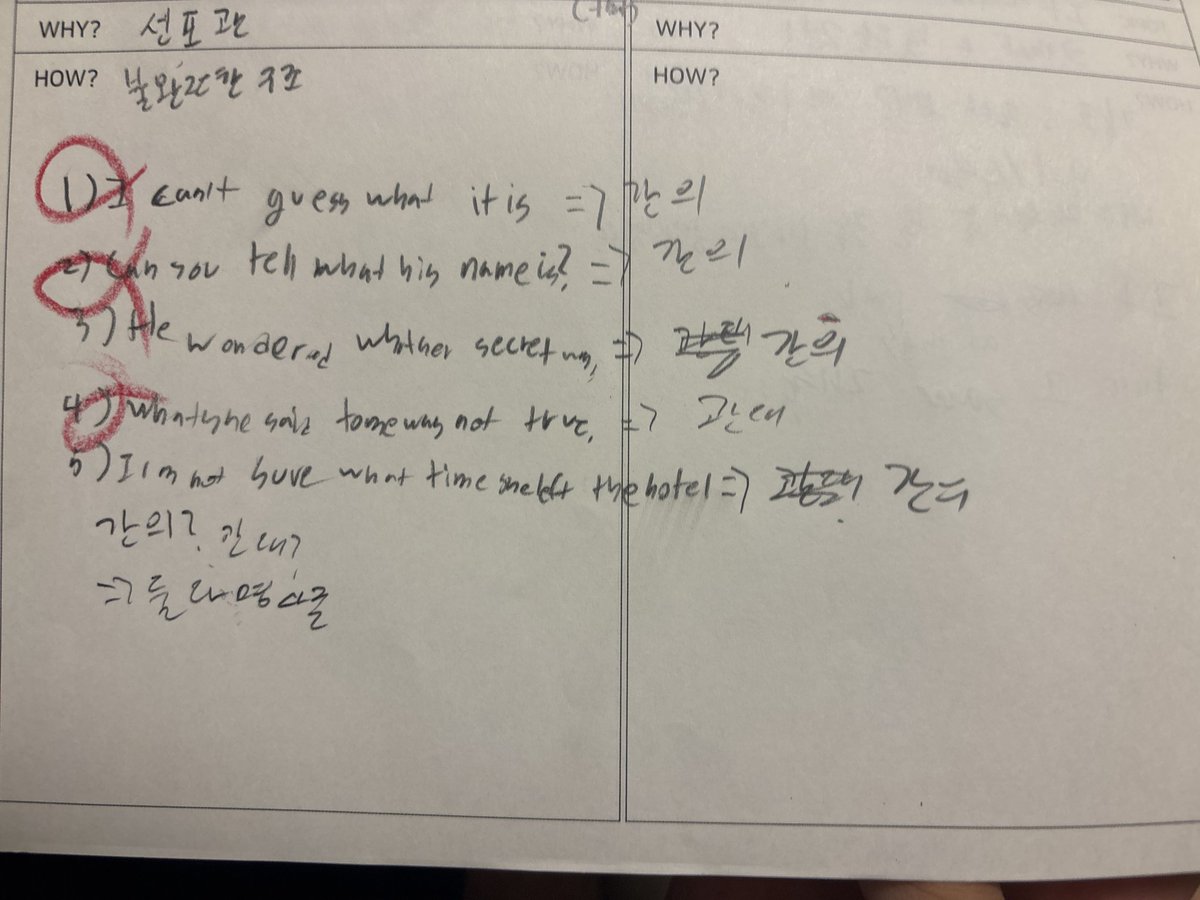 WHY? 선포관
WHY?
HOW? 불완전한 구조
HOW?
1) I can't guess what it is => 간의
2) Can you tell what his name is? => 간의
3) He wondered what her secret was, => 간의
4) What she said to me was not true, => 관대
5) I'm not sure what time she left the hotel => 간의
간의? 관대?
=> 둘 다 명사절